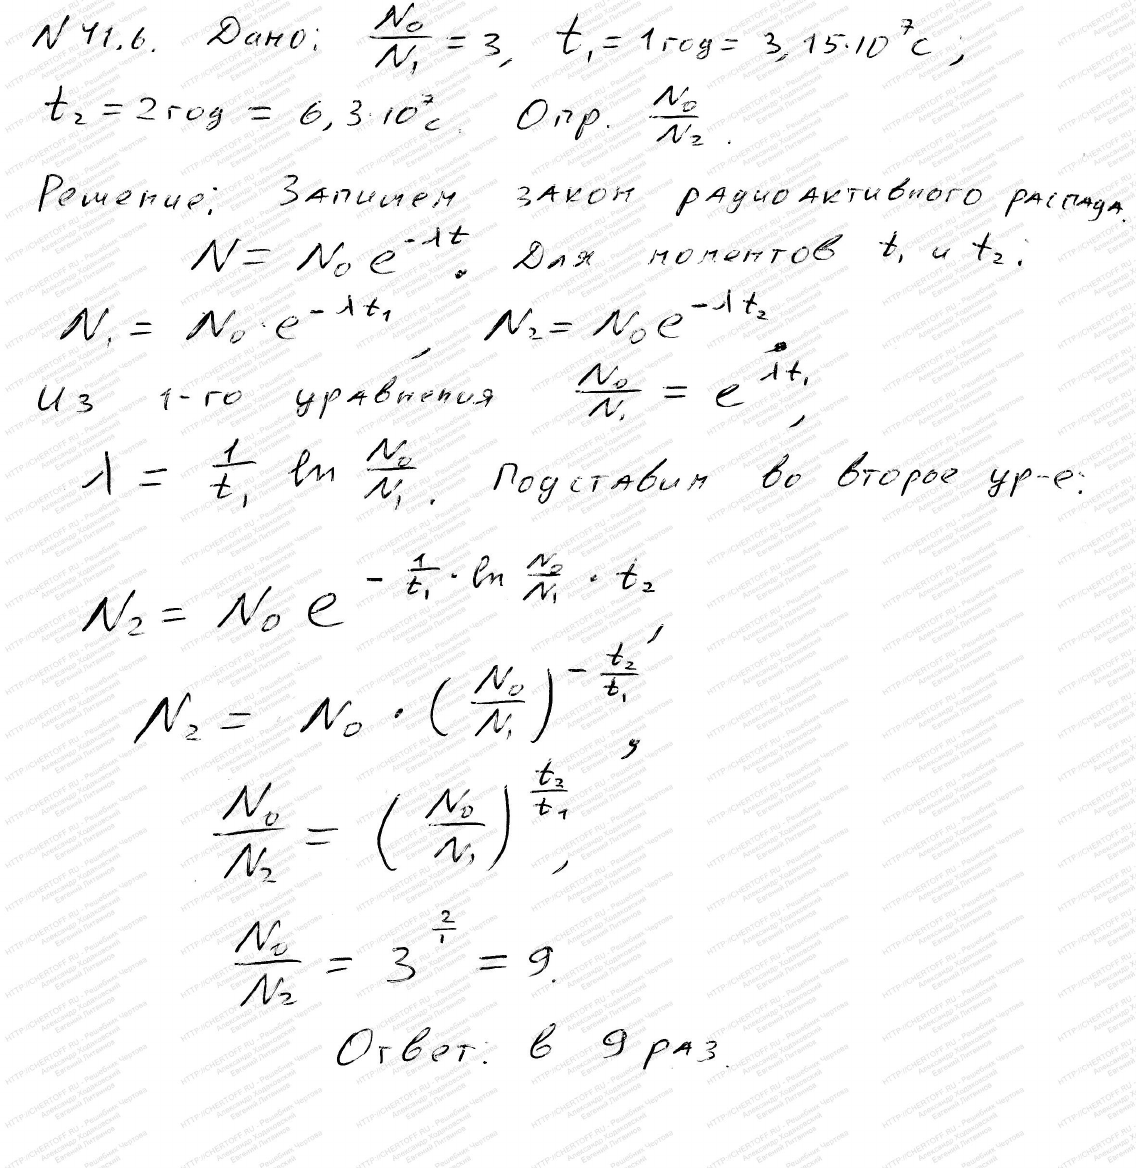 N 41.6. Дано: N₀/N₁ = 3, t₁ = 1 год = 3,15·10⁷ с;
t₂ = 2 год = 6,3·10⁷ с. Опр. N₀/N₂.
Решение: Запишем закон радиоактивного распада.
N = N₀ e^(-λt). Для моментов t₁ и t₂:
N₁ = N₀·e^(-λt₁), N₂ = N₀ e^(-λt₂).
Из 1-го уравнения N₀/N₁ = e^(λt₁),
λ = 1/t₁ ln N₀/N₁. Подставим во второе ур-е:
N₂ = N₀ e^(-1/t₁ · ln N₀/N₁ · t₂),
N₂ = N₀ · (N₀/N₁)^(-t₂/t₁),
N₀/N₂ = (N₀/N₁)^(t₂/t₁),
N₀/N₂ = 3^(2/1) = 9.
Ответ: в 9 раз.
HTTP://CHERTOFF.RU - Решебник Чертова